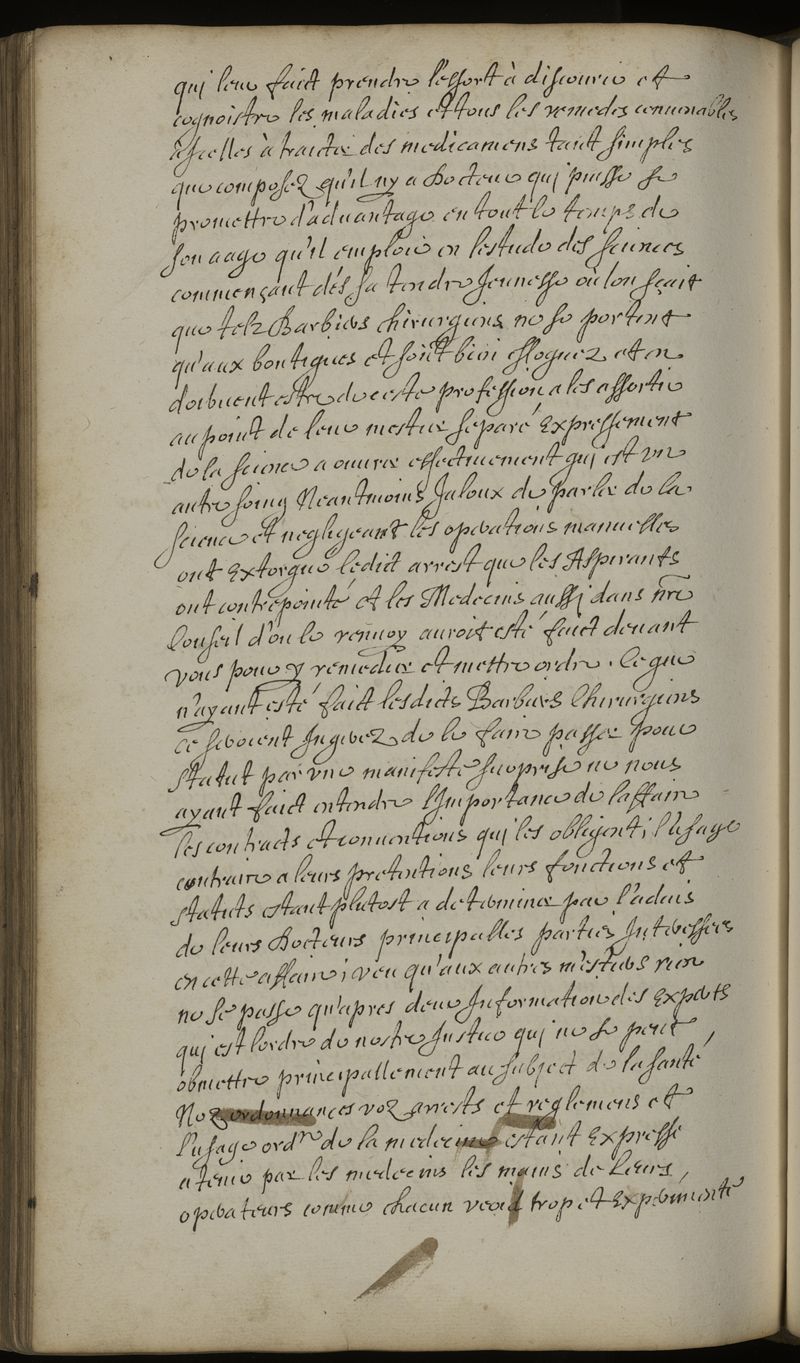 qui leur faict prendre l'essort à discourir et
cognoistre les maladies et tous les remedes conuenables
à icelles à traicter des medicamens tant simples
que composez qu'il ny a docteur qui puisse se
promettre d'aduantage en tout le temps de
son aage qu'il emploie en lestude des sciences
commençant dés sa tendre Jeunesse où lon sçait
que telz Barbiers chirurgiens ne se portent
qu'aux boutiques et sont bien esloguez et en
doibuent estre de ceste profession a les assortir
au point de leur mestier separé Expressement
de la science a ouurer effectiuement qui est vn
autre soing Neantmoins Jaloux de parler de la
science et negligeant les operations manuelles
ont Extorqué ledict arrest que les Aspirants
ont contrepointé et les Medecins aussi dans nre
Conseil d'ou le renuoy auroit esté faict deuant
vous pour y remedier et mettre ordre. Ce que
n'ayant esté faict lesdicts Barbiers Chirurgiens
se seroient Ingerez de le faire passer pour
statut par vne manifeste surprise ne nous
ayant faict entendre l'Importance de laffaire
les contracts et conuentions qui les obligent; l'usage
contraire a leurs pretentions leurs fonctions et
statuts estant plutost a determiner par l'aduis
de leurs Docteurs principalles parties Interessees
en cette affaire; veu qu'aux autres mestiers rien
ne se passe qu'apres deue Information des Experts
qui est lordre de nostre Justice qui ne se peut
obmettre principallement au subject de la santé
Noz ordonnances voz arrests et reglemens et
l'usage ordre de la medecine estant Expresse
a tenir par les medecins les mains de Leurs
operateurs comme chacun veoid trop et Experimenté